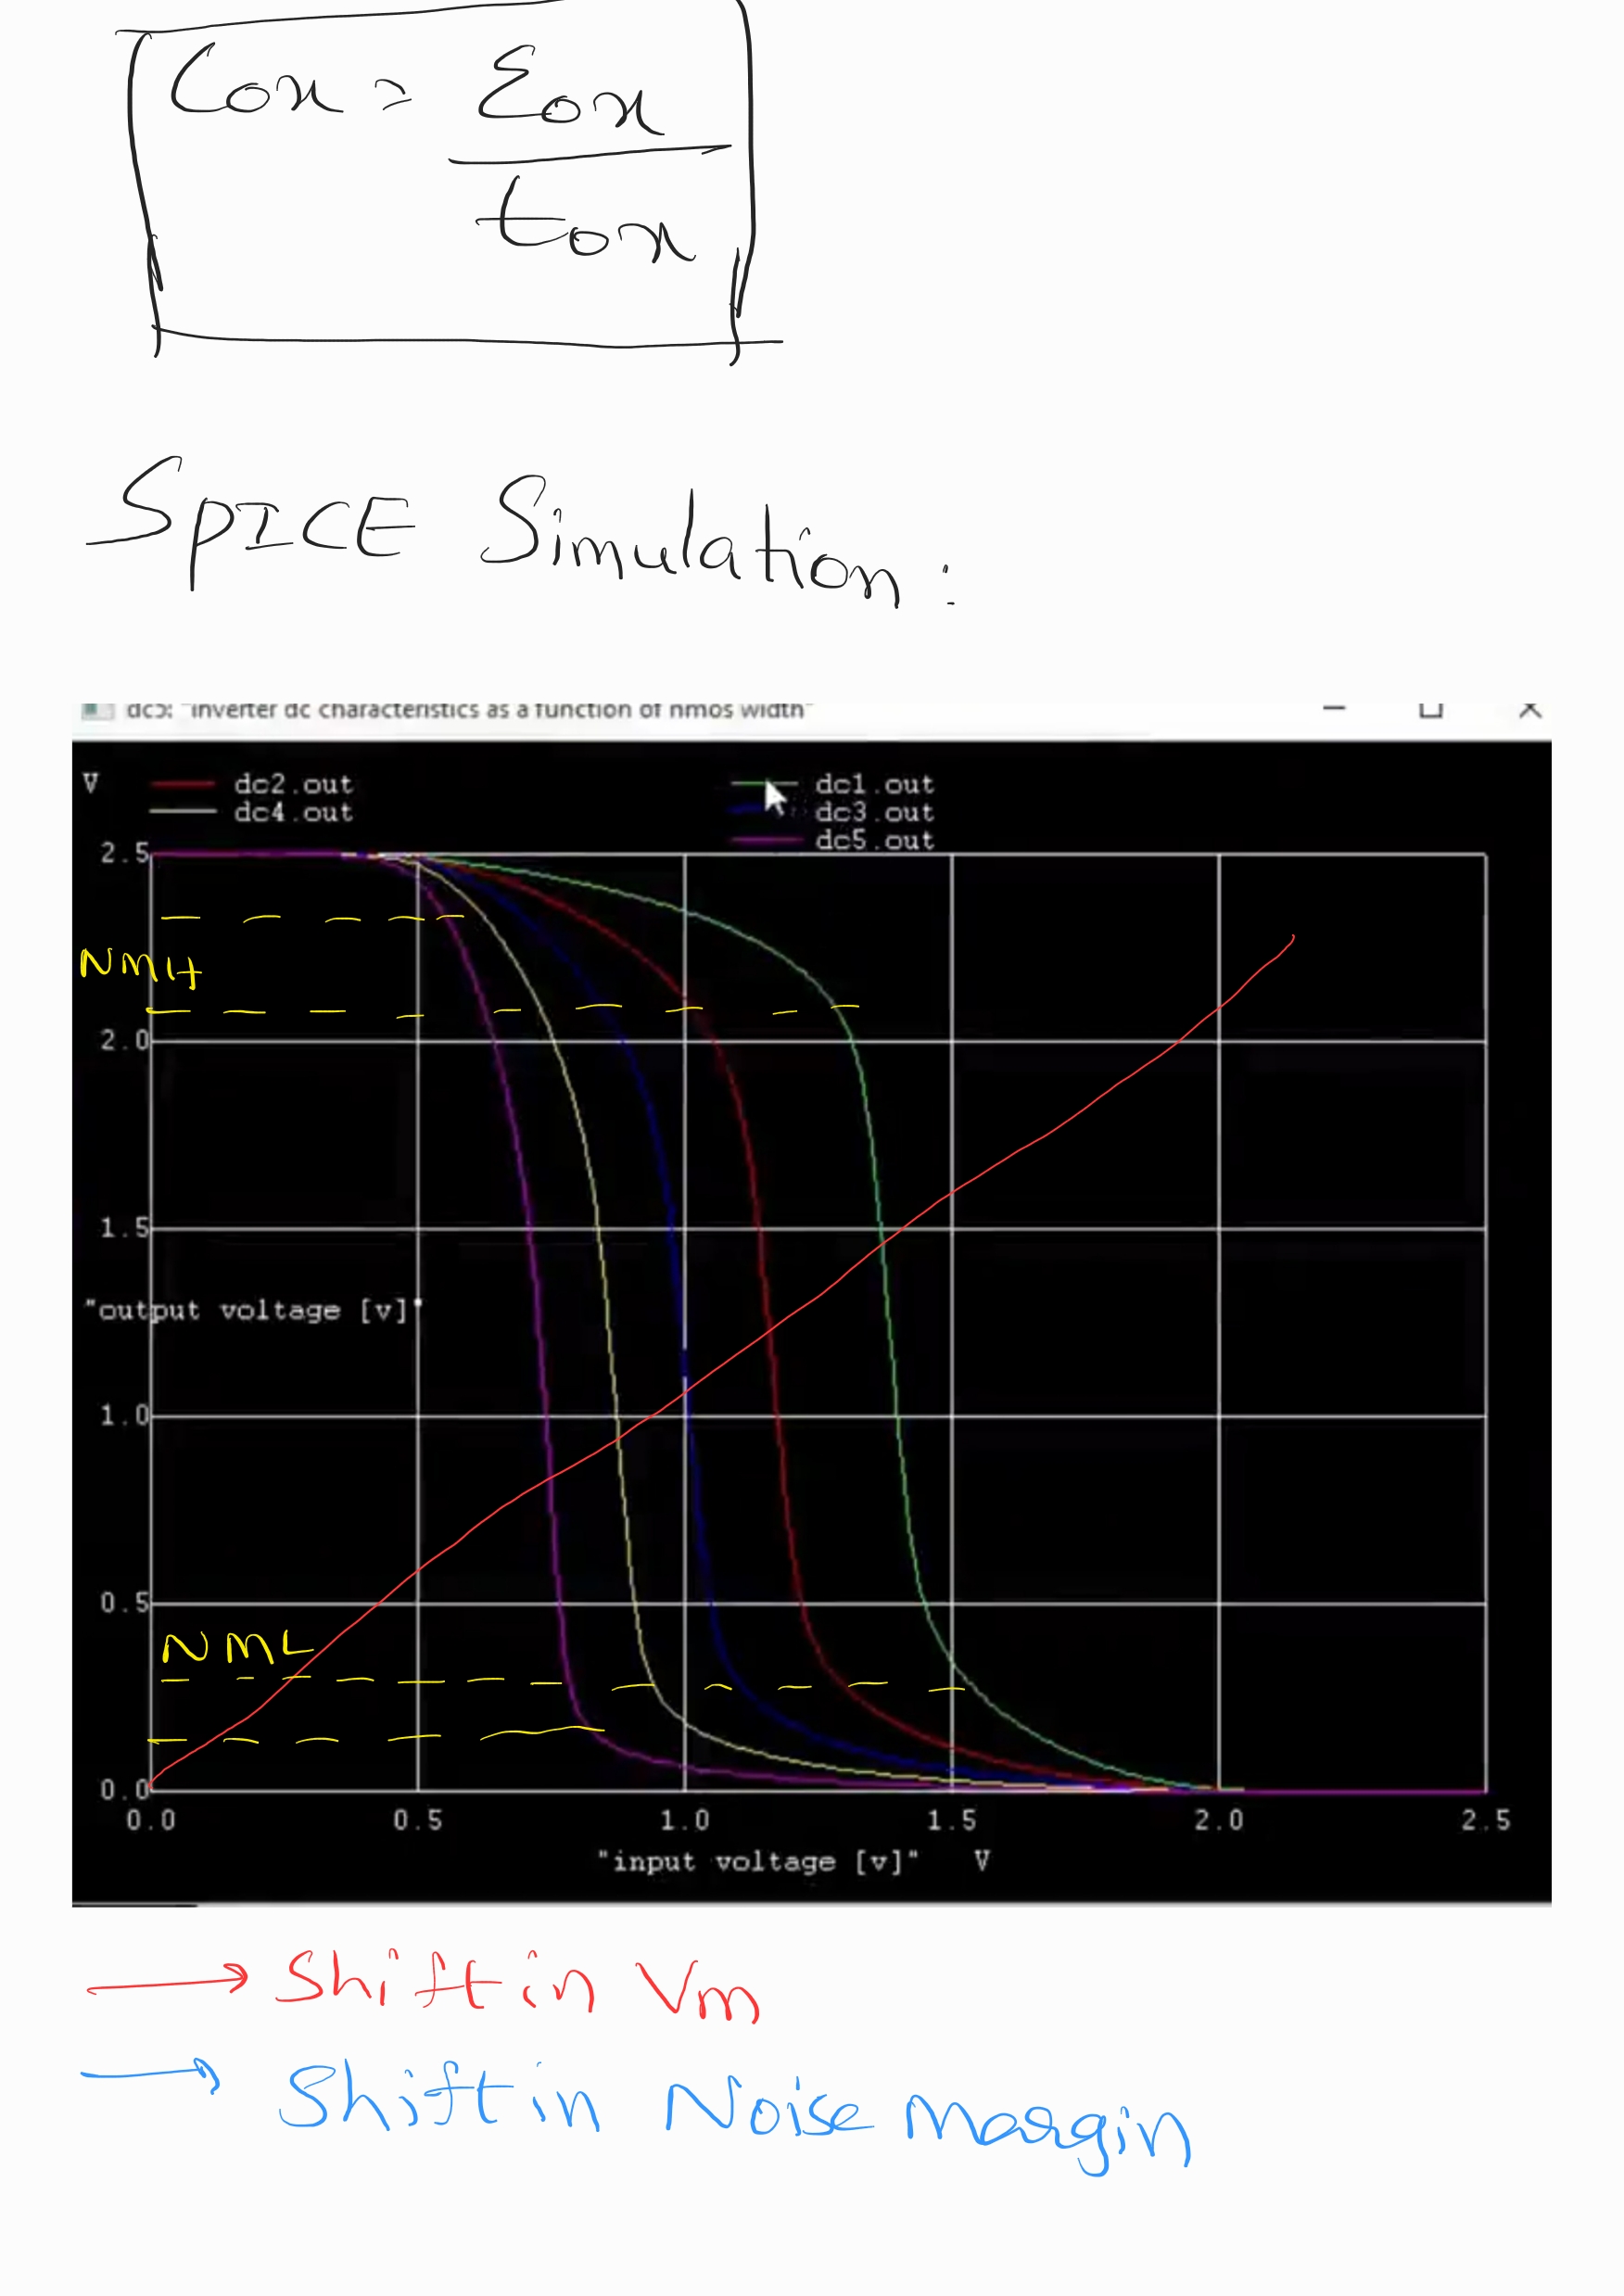 Cox = εox
tox
SPICE Simulation:
dc5: "inverter dc characteristics as a function of nmos width"
V dc2.out dc1.out
dc4.out dc3.out
dc5.out
2.5
NMH
2.0
1.5
"output voltage [v]"
1.0
0.5
NML
0.0
0.0 0.5 1.0 1.5 2.0 2.5
"input voltage [v]" V
→ Shift in Vm
→ Shift in Noise Margin